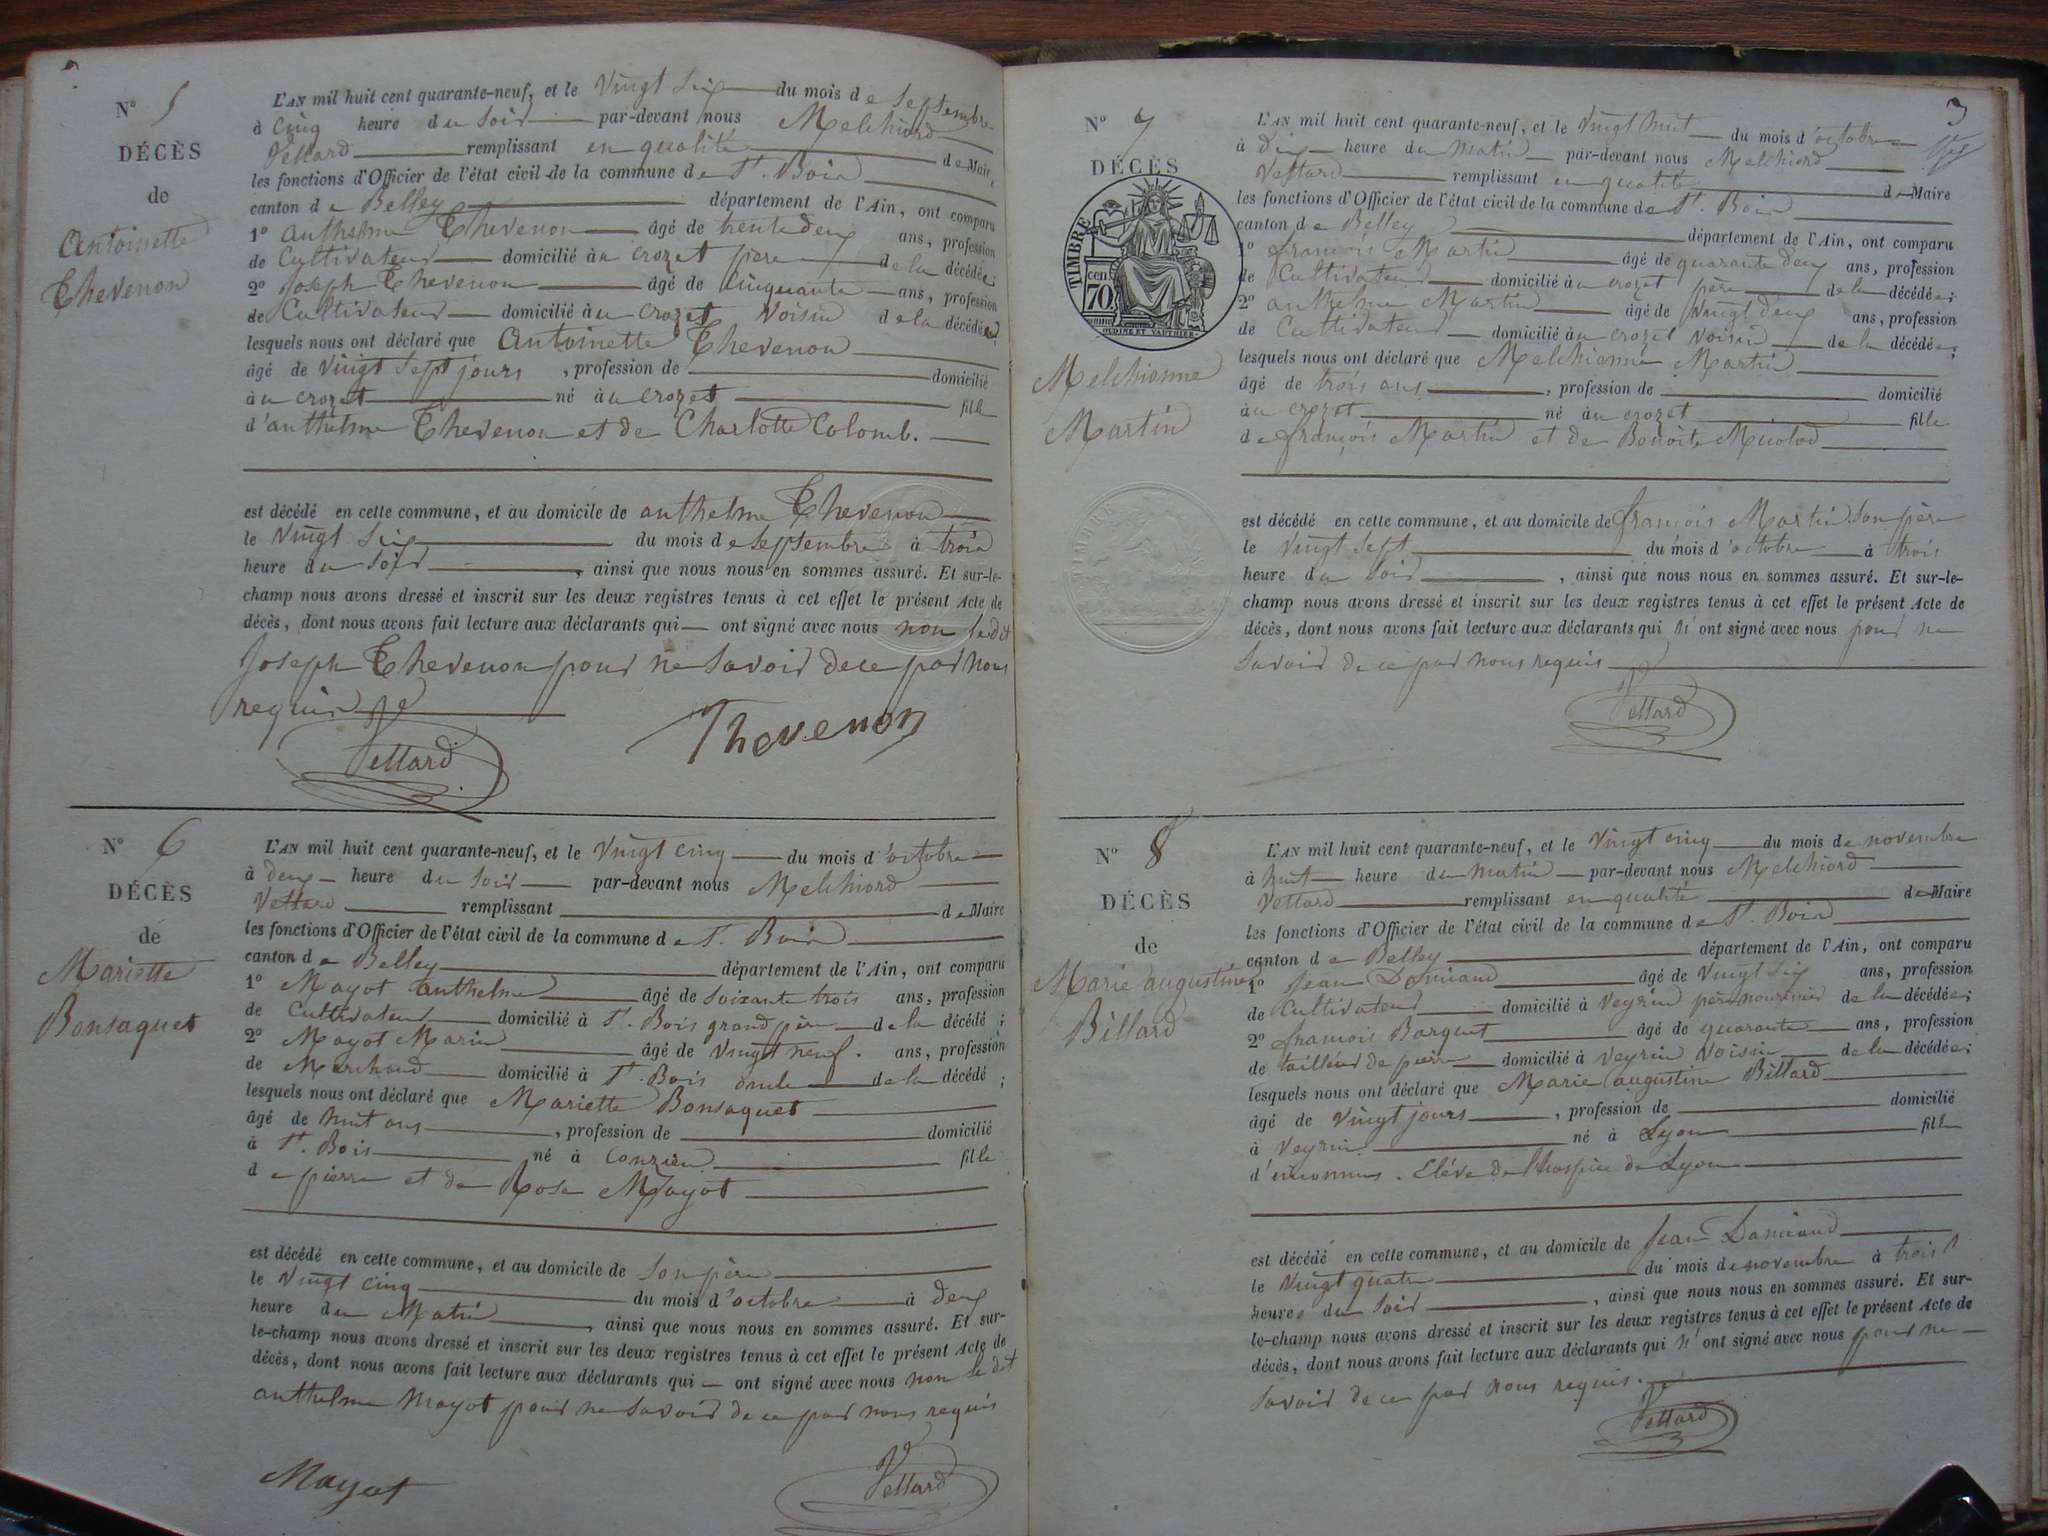 N° 5
DÉCÈS
de
Antoinette
Thevenon
L'AN mil huit cent quarante-neuf, et le Vingt Six du mois de Septembre
à Cinq heure du Soir par-devant nous Melchiord
Vettard remplissant en qualité de Maire
les fonctions d'Officier de l'état civil de la commune de St. Bois
canton de Belley département de l'Ain, ont comparu
1° Anthelme Thevenon âgé de trente deux ans, profession
de Cultivateur domicilié au crozet père de la décédée;
2° Joseph Thevenon âgé de Cinquante ans, profession
de Cultivateur domicilié au crozet Voisin de la décédée
lesquels nous ont déclaré que Antoinette Thevenon
âgé de Vingt Sept jours, profession de domicilié
au crozet né au crozet fille
d'anthelme Thevenon et de Charlotte Colomb.
est décédé en cette commune, et au domicile de anthelme Thevenon
le Vingt Six du mois de Septembre à trois
heure du Soir, ainsi que nous nous en sommes assuré. Et sur-le-
champ nous avons dressé et inscrit sur les deux registres tenus à cet effet le présent Acte de
décès, dont nous avons fait lecture aux déclarants qui ont signé avec nous non le dit
Joseph Thevenon pour ne Savoir de ce par nous
requis
Vettard
Thevenon
N° 6
DÉCÈS
de
Mariette
Bonsaquet
L'AN mil huit cent quarante-neuf, et le Vingt cinq du mois d'octobre
à deux heure du Soir par-devant nous Melchiord
Vettard remplissant de Maire
les fonctions d'Officier de l'état civil de la commune de St. Bois
canton de Belley département de l'Ain, ont comparu
1° Mayot anthelme âgé de Soixante trois ans, profession
de Cultivateur domicilié à St. Bois grand père de la décédé;
2° Mayot Marin âgé de Vingt neuf. ans, profession
de Marchand domicilié à St. Bois oncle de la décédé;
lesquels nous ont déclaré que Mariette Bonsaquet
âgé de huit ans, profession de domicilié
à St. Bois né à Conzieu fille
de pierre et de Rose Mayot
est décédé en cette commune, et au domicile de Son père
le Vingt cinq du mois d'octobre à deux
heure du Matin, ainsi que nous nous en sommes assuré. Et sur-
le-champ nous avons dressé et inscrit sur les deux registres tenus à cet effet le présent Acte de
décès, dont nous avons fait lecture aux déclarants qui ont signé avec nous non le dit
anthelme Mayot pour ne Savoir de ce par nous requis
Mayot
Vettard
3
N° 7
DÉCÈS
TIMBRE
70 cen
OUDINE ET VAUTHIER
Melchionne
Martin
L'AN mil huit cent quarante-neuf, et le Vingt huit du mois d'octobre
à dix heure du Matin par-devant nous Melchiord
Vettard remplissant en qualité de Maire
les fonctions d'Officier de l'état civil de la commune de St. Bois
canton de Belley département de l'Ain, ont comparu
1° françois Martin âgé de quarante deux ans, profession
de Cultivateur domicilié au crozet père de la décédée;
2° anthelme Martin âgé de Vingt deux ans, profession
de Cultivateur domicilié au crozet Voisin de la décédée;
lesquels nous ont déclaré que Melchionne Martin
âgé de trois ans, profession de domicilié
au crozet né au crozet fille
de françois Martin et de Benoite Micolod
est décédé en cette commune, et au domicile de françois Martin Son père
le Vingt Sept du mois d'octobre à trois
heure du Soir, ainsi que nous nous en sommes assuré. Et sur-le-
champ nous avons dressé et inscrit sur les deux registres tenus à cet effet le présent Acte de
décès, dont nous avons fait lecture aux déclarants qui n'ont signé avec nous pour ne
Savoir de ce par nous requis
Vettard
N° 8
DÉCÈS
de
Marie augustine
Billard
L'AN mil huit cent quarante-neuf, et le Vingt cinq du mois de novembre
à huit heure du matin par-devant nous Melchiord
Vettard remplissant en qualité de Maire
les fonctions d'Officier de l'état civil de la commune de St. Bois
canton de Belley département de l'Ain, ont comparu
1° Jean Damiand âgé de Vingt Six ans, profession
de Cultivateur domicilié à Veyrin père nourricier de la décédée;
2° françois Barquet âgé de quarante ans, profession
de tailleur de pierre domicilié à Veyrin Voisin de la décédée;
lesquels nous ont déclaré que Marie augustine Billard
âgé de Vingt jours, profession de domicilié
à Veyrin né à Lyon fille
d'inconnus. Elève de l'hospice de Lyon
est décédé en cette commune, et au domicile de Jean Damiand
le Vingt quatre du mois de novembre à trois
heures du Soir, ainsi que nous nous en sommes assuré. Et sur-
le-champ nous avons dressé et inscrit sur les deux registres tenus à cet effet le présent Acte de
décès, dont nous avons fait lecture aux déclarants qui n'ont signé avec nous pour ne
Savoir de ce par nous requis.
Vettard